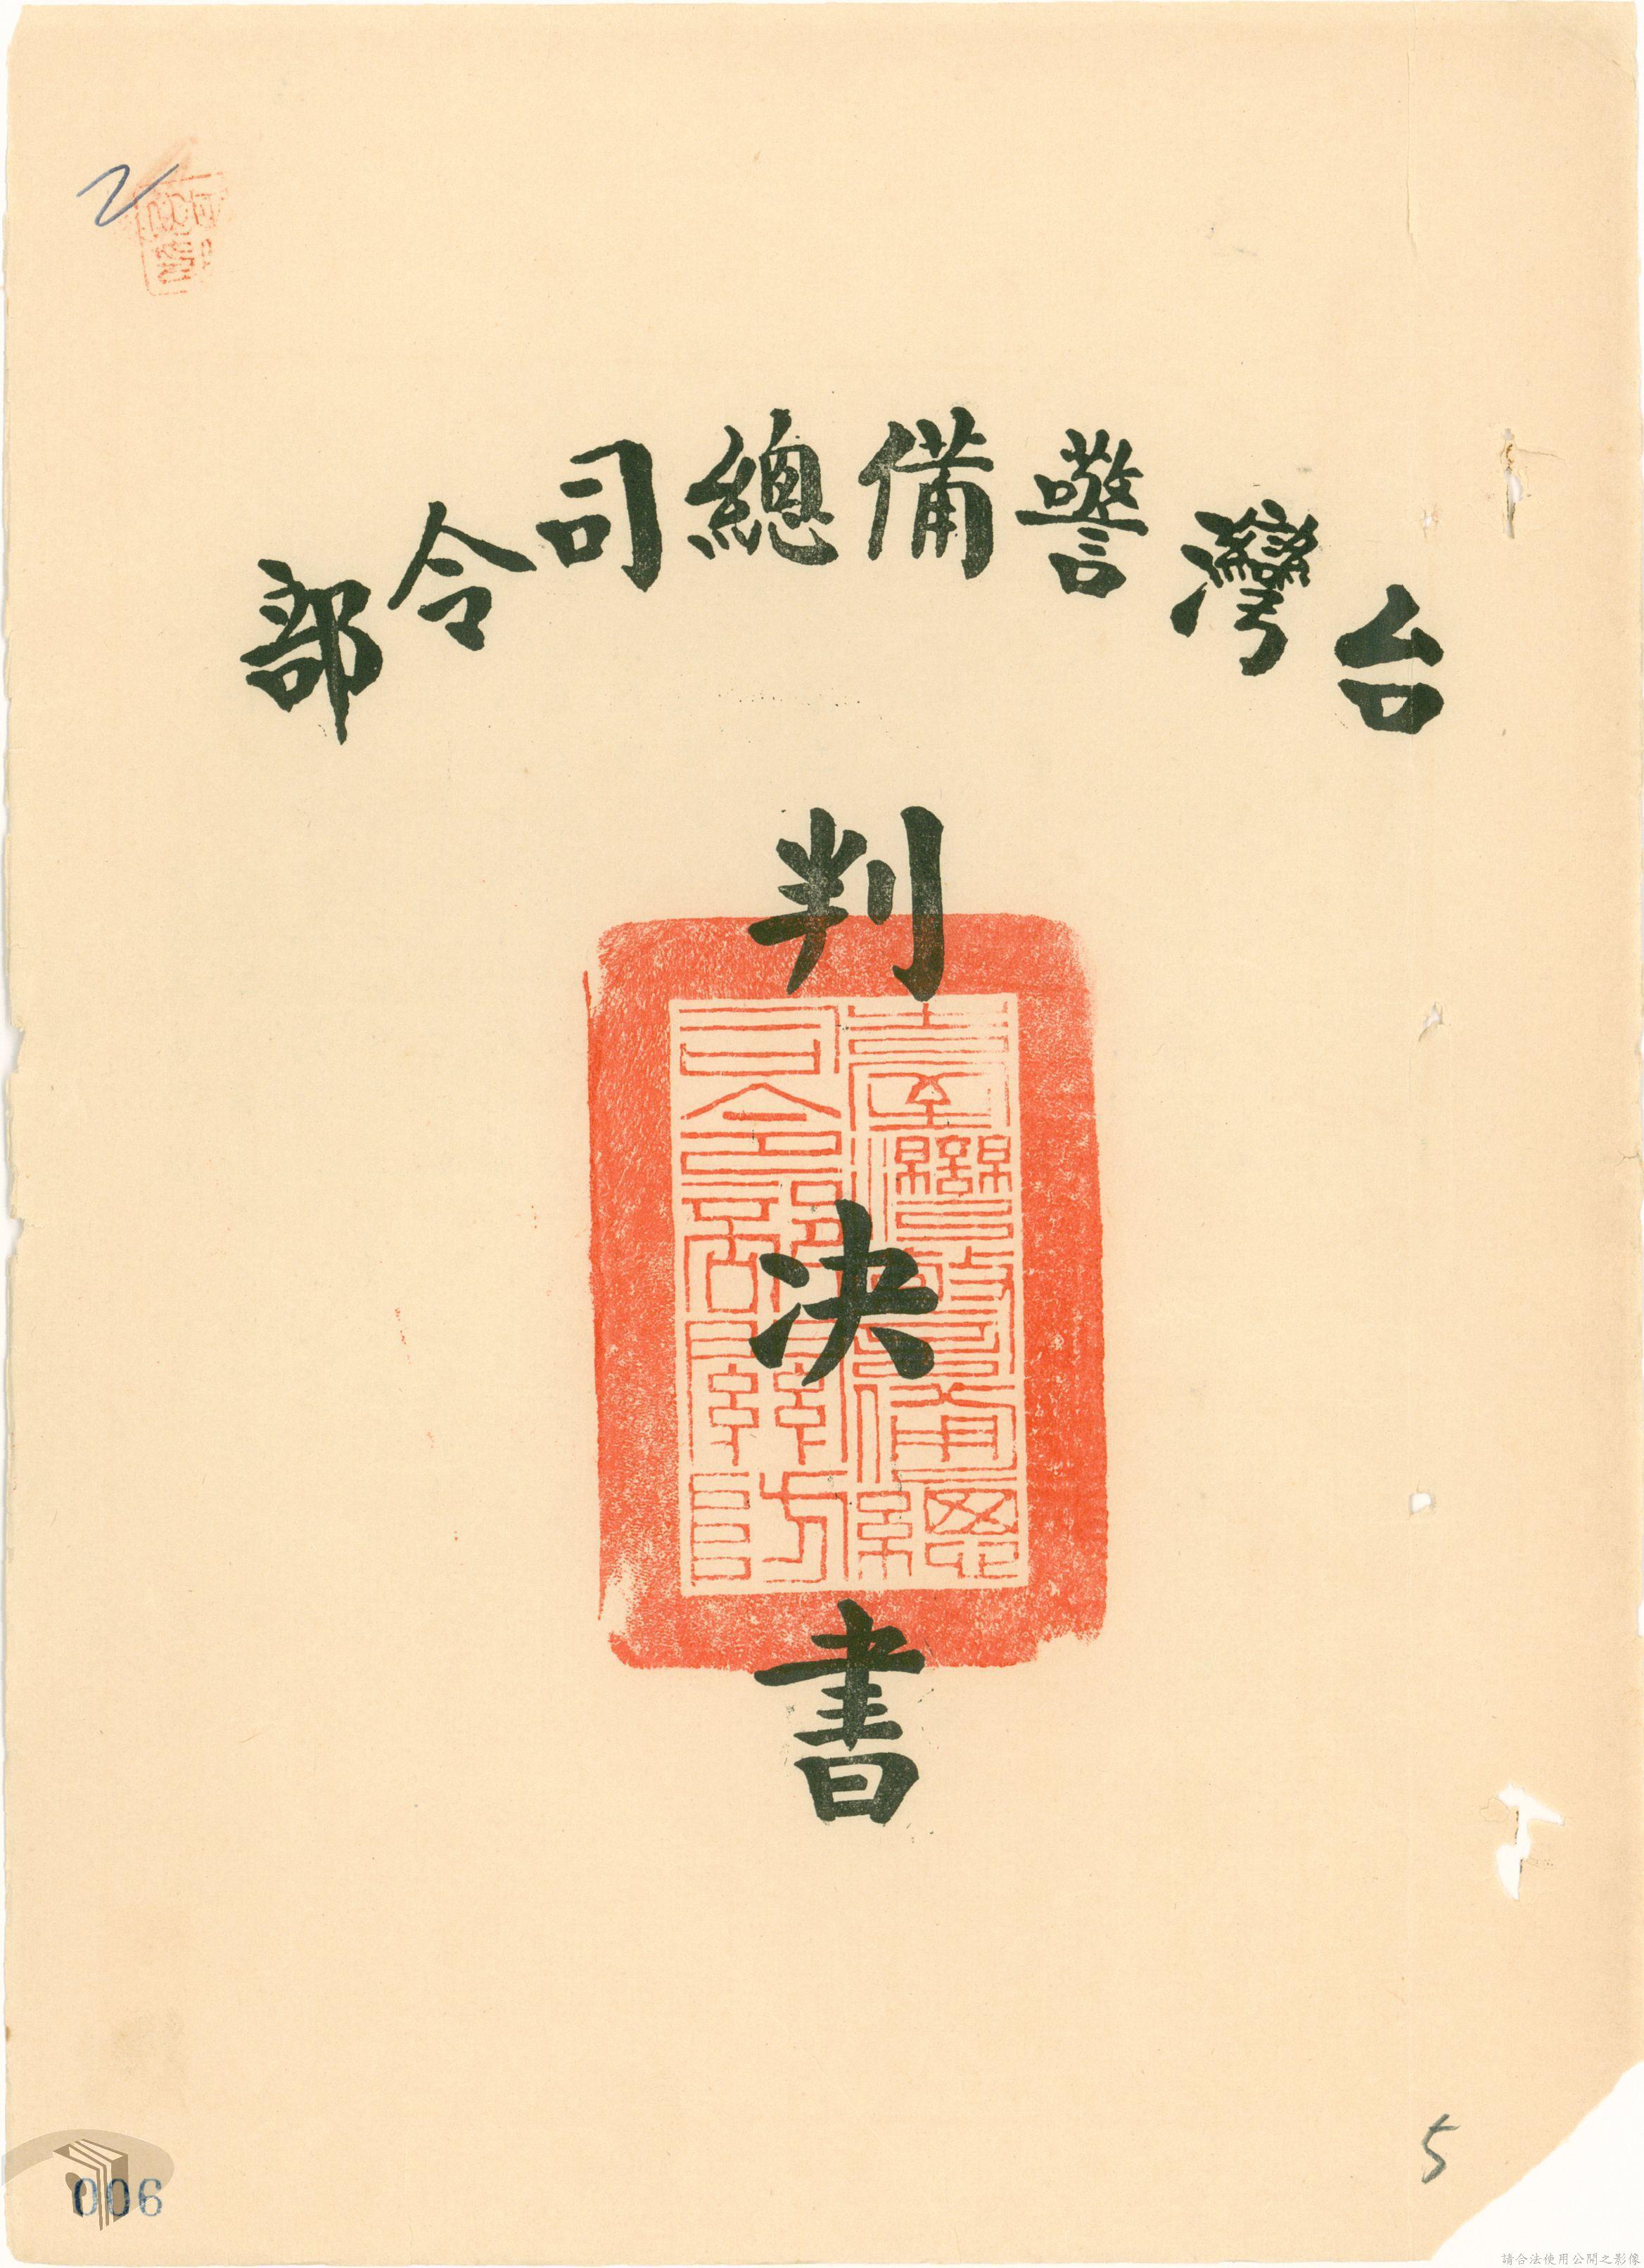 台灣警備總司令部
判決書
臺灣警備總
司令部關防
2
5
006
請合法使用公開之影像